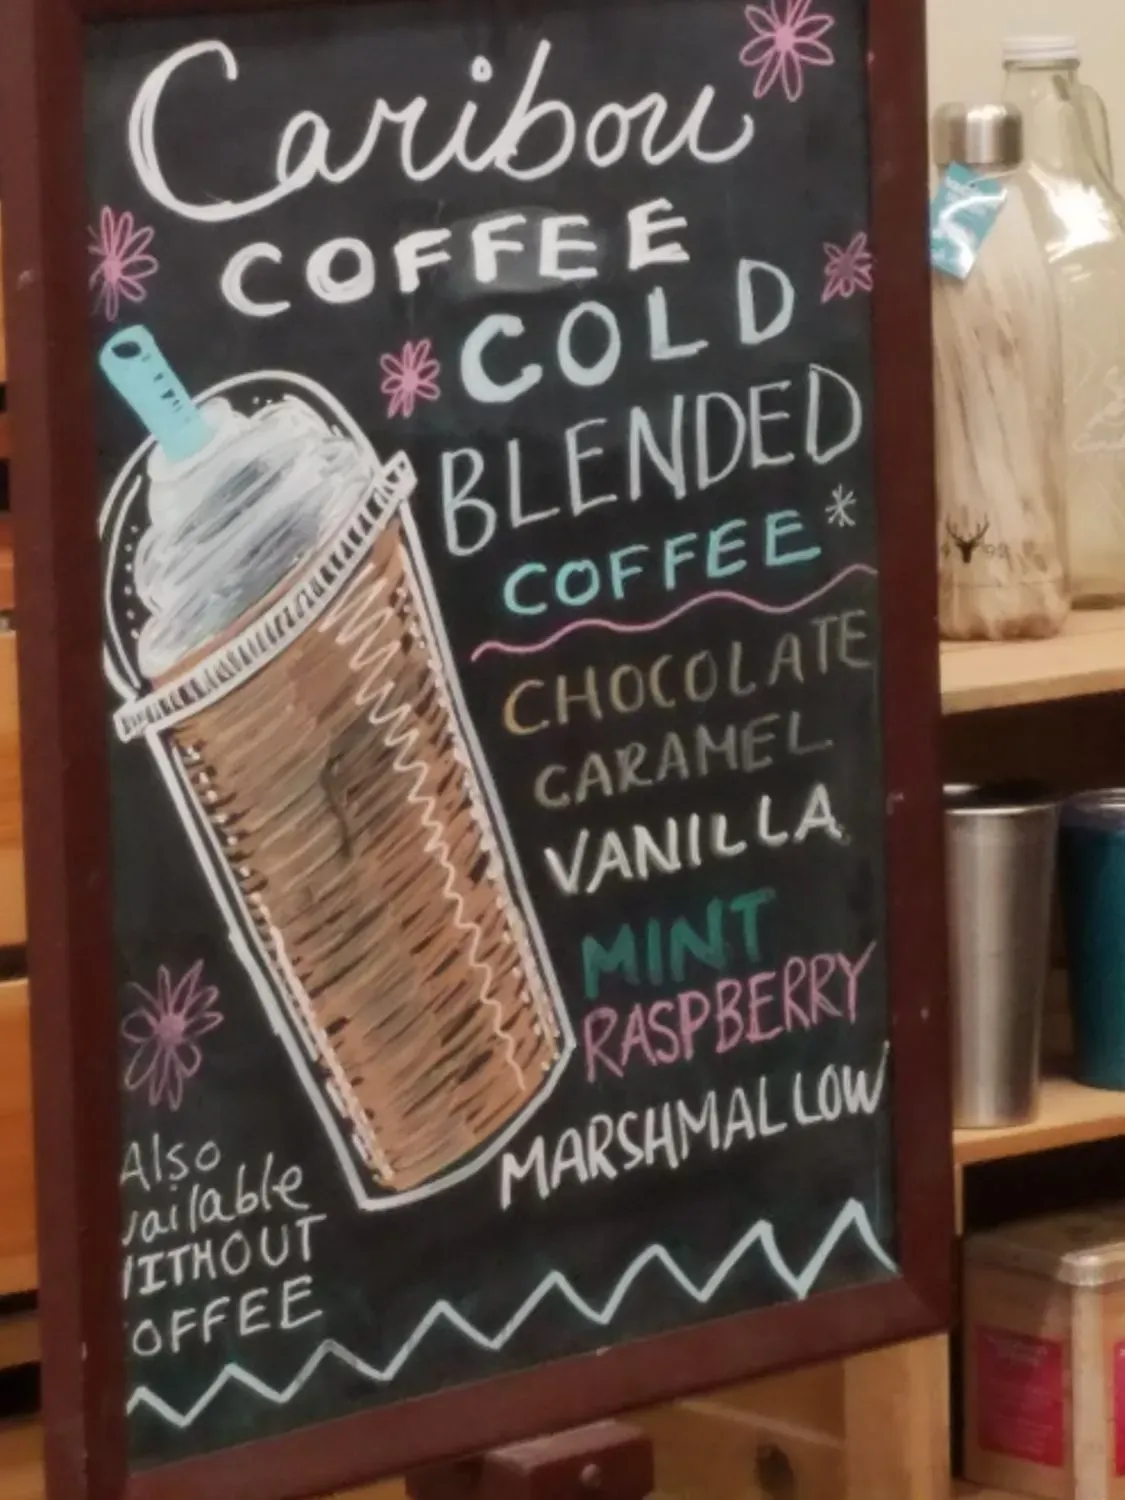 Caribou
COFFEE
COLD
BLENDED
COFFEE*
CHOCOLATE
CARAMEL
VANILLA
MINT
RASPBERRY
MARSHMALLOW
Also
vailable
WITHOUT
OFFEE